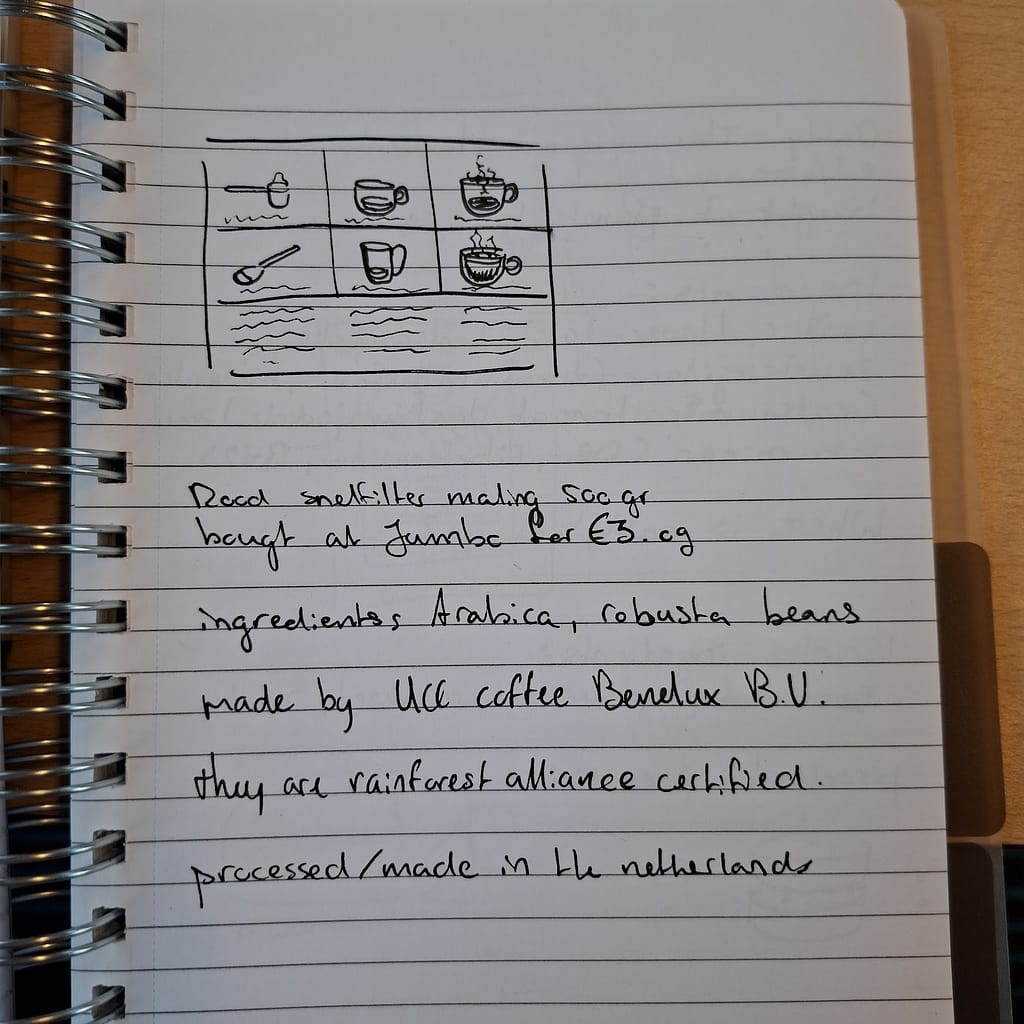 Rood snelfilter maling 500 gr
bougt at Jumbo for €3.09
ingredients: Arabica, robusta beans
made by UCC coffee Benelux B.V.
they are rainforest alliance certified.
processed/made in the netherlands